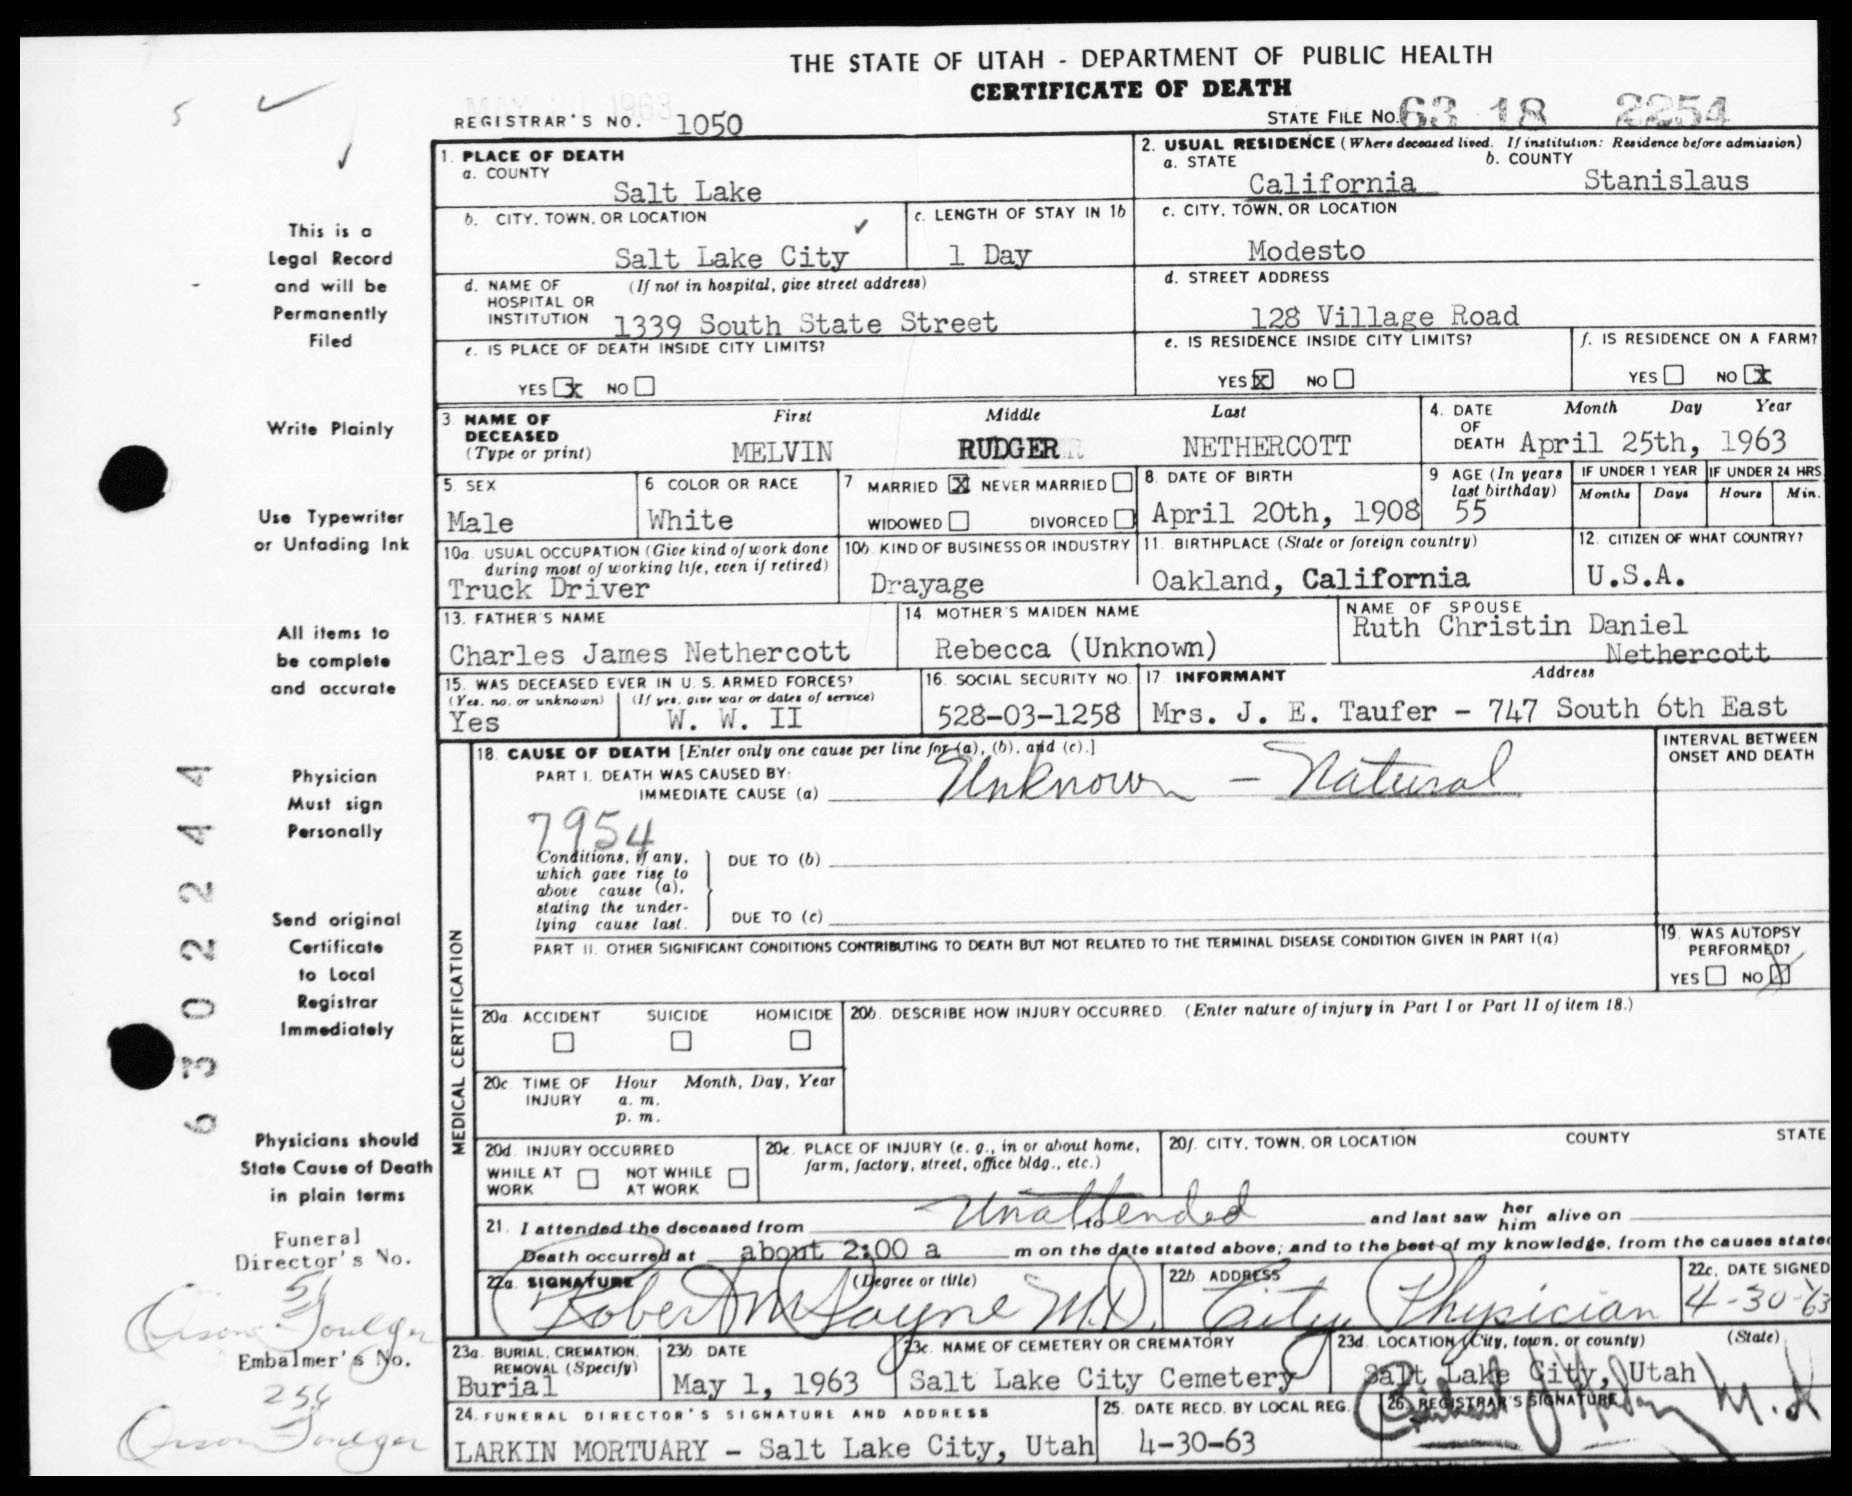 THE STATE OF UTAH - DEPARTMENT OF PUBLIC HEALTH
CERTIFICATE OF DEATH
MAY 21 1963
REGISTRAR'S NO. 1050
STATE FILE NO. 63 18 2254
This is a
Legal Record
and will be
Permanently
Filed
Write Plainly
Use Typewriter
or Unfading Ink
All items to
be complete
and accurate
Physician
Must sign
Personally
Send original
Certificate
to Local
Registrar
Immediately
Physicians should
State Cause of Death
in plain terms
Funeral
Director's No.
51
Orson Foulger
Embalmer's No.
256
Orson Foulger
63022 44
1. PLACE OF DEATH
a. COUNTY
Salt Lake
b. CITY, TOWN, OR LOCATION
Salt Lake City
c. LENGTH OF STAY IN 1b
1 Day
d. NAME OF HOSPITAL OR INSTITUTION (If not in hospital, give street address)
1339 South State Street
e. IS PLACE OF DEATH INSIDE CITY LIMITS?
YES X NO
2. USUAL RESIDENCE (Where deceased lived. If institution: Residence before admission)
a. STATE
California
b. COUNTY
Stanislaus
c. CITY, TOWN, OR LOCATION
Modesto
d. STREET ADDRESS
128 Village Road
e. IS RESIDENCE INSIDE CITY LIMITS?
YES X NO
f. IS RESIDENCE ON A FARM?
YES NO X
3. NAME OF DECEASED (Type or print)
First Middle Last
MELVIN RUDGER NETHERCOTT
4. DATE OF DEATH Month Day Year
April 25th, 1963
5. SEX
Male
6 COLOR OR RACE
White
7 MARRIED X NEVER MARRIED
WIDOWED DIVORCED
8. DATE OF BIRTH
April 20th, 1908
9 AGE (In years last birthday)
55
IF UNDER 1 YEAR
Months Days
IF UNDER 24 HRS
Hours Min.
10a. USUAL OCCUPATION (Give kind of work done during most of working life, even if retired)
Truck Driver
10b. KIND OF BUSINESS OR INDUSTRY
Drayage
11. BIRTHPLACE (State or foreign country)
Oakland, California
12. CITIZEN OF WHAT COUNTRY?
U.S.A.
13. FATHER'S NAME
Charles James Nethercott
14 MOTHER'S MAIDEN NAME
Rebecca (Unknown)
NAME OF SPOUSE
Ruth Christin Daniel
Nethercott
15. WAS DECEASED EVER IN U.S. ARMED FORCES?
(Yes, no, or unknown) (If yes, give war or dates of service)
Yes W. W. II
16. SOCIAL SECURITY NO.
528-03-1258
17. INFORMANT Address
Mrs. J. E. Taufer - 747 South 6th East
MEDICAL CERTIFICATION
18. CAUSE OF DEATH [Enter only one cause per line for (a), (b), and (c).]
PART I. DEATH WAS CAUSED BY:
IMMEDIATE CAUSE (a) Unknown - Natural
INTERVAL BETWEEN
ONSET AND DEATH
7954
Conditions, if any,
which gave rise to
above cause (a),
stating the under-
lying cause last.
DUE TO (b)
DUE TO (c)
PART II. OTHER SIGNIFICANT CONDITIONS CONTRIBUTING TO DEATH BUT NOT RELATED TO THE TERMINAL DISEASE CONDITION GIVEN IN PART I(a)
19. WAS AUTOPSY
PERFORMED?
YES NO X
20a. ACCIDENT SUICIDE HOMICIDE
20b. DESCRIBE HOW INJURY OCCURRED. (Enter nature of injury in Part I or Part II of item 18.)
20c TIME OF INJURY Hour Month, Day, Year
a. m.
p. m.
20d. INJURY OCCURRED
WHILE AT WORK NOT WHILE AT WORK
20e. PLACE OF INJURY (e. g., in or about home, farm, factory, street, office bldg., etc.)
20f. CITY, TOWN, OR LOCATION COUNTY STATE
21. I attended the deceased from Unattended and last saw her him alive on
Death occurred at about 2:00 a m on the date stated above; and to the best of my knowledge, from the causes stated
22a. SIGNATURE (Degree or title)
Robert M Payne M.D.
22b. ADDRESS
City Physician
22c. DATE SIGNED
4-30-63
23a. BURIAL, CREMATION, REMOVAL (Specify)
Burial
23b. DATE
May 1, 1963
23c. NAME OF CEMETERY OR CREMATORY
Salt Lake City Cemetery
23d. LOCATION (City, town, or county) (State)
Salt Lake City, Utah
24. FUNERAL DIRECTOR'S SIGNATURE AND ADDRESS
LARKIN MORTUARY - Salt Lake City, Utah
25. DATE RECD. BY LOCAL REG.
4-30-63
26. REGISTRAR'S SIGNATURE